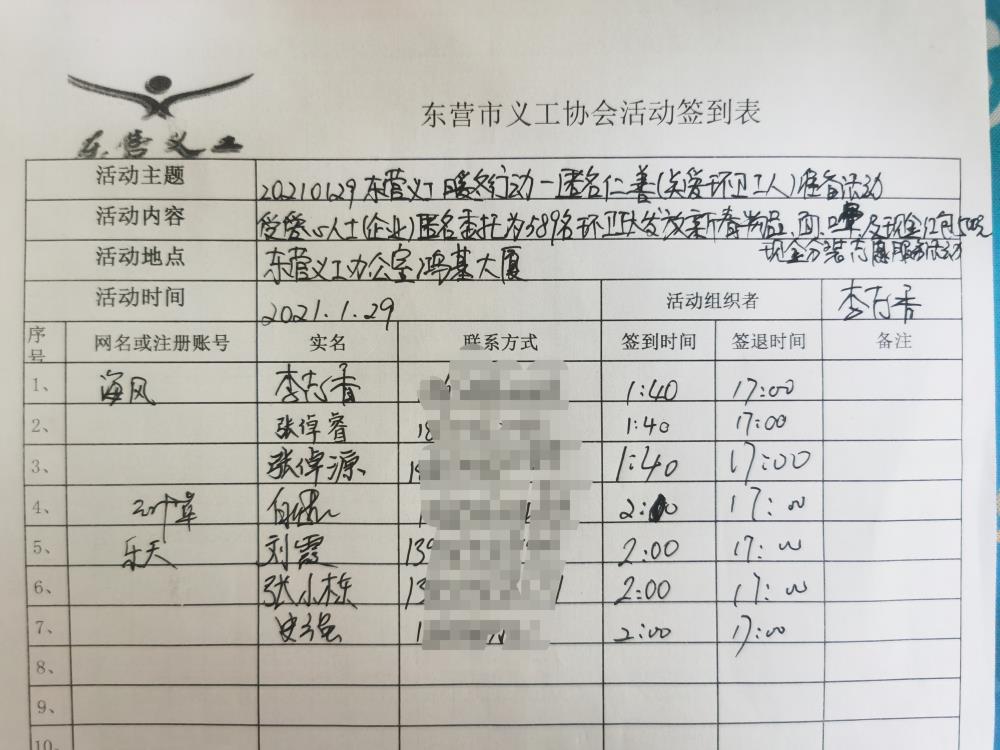 东营义工
东营市义工协会活动签到表
活动主题 20210129东营义工暖冬行动—匿名仁善(关爱环卫工人)准备活动
活动内容 受爱心人士(企业)匿名委托为389名环卫工发放新春物品、面、及现金红包50元
现金分装志愿服务活动
活动地点 东营义工办公室鸿基大厦
活动时间 2021.1.29 活动组织者 李存香
序号 网名或注册账号 实名 联系方式 签到时间 签退时间 备注
1、 海风 李存香 1:40 17:00
2、 张倬睿 18 1:40 17:00
3、 张倬源 1:40 17:00
4、 三叶草 1 2:00 17:00
5、 乐天 刘霞 139 2:00 17:00
6、 张小栋 13 2:00 17:00
7、 史强 1 2:00 17:00
8、
9、
10、